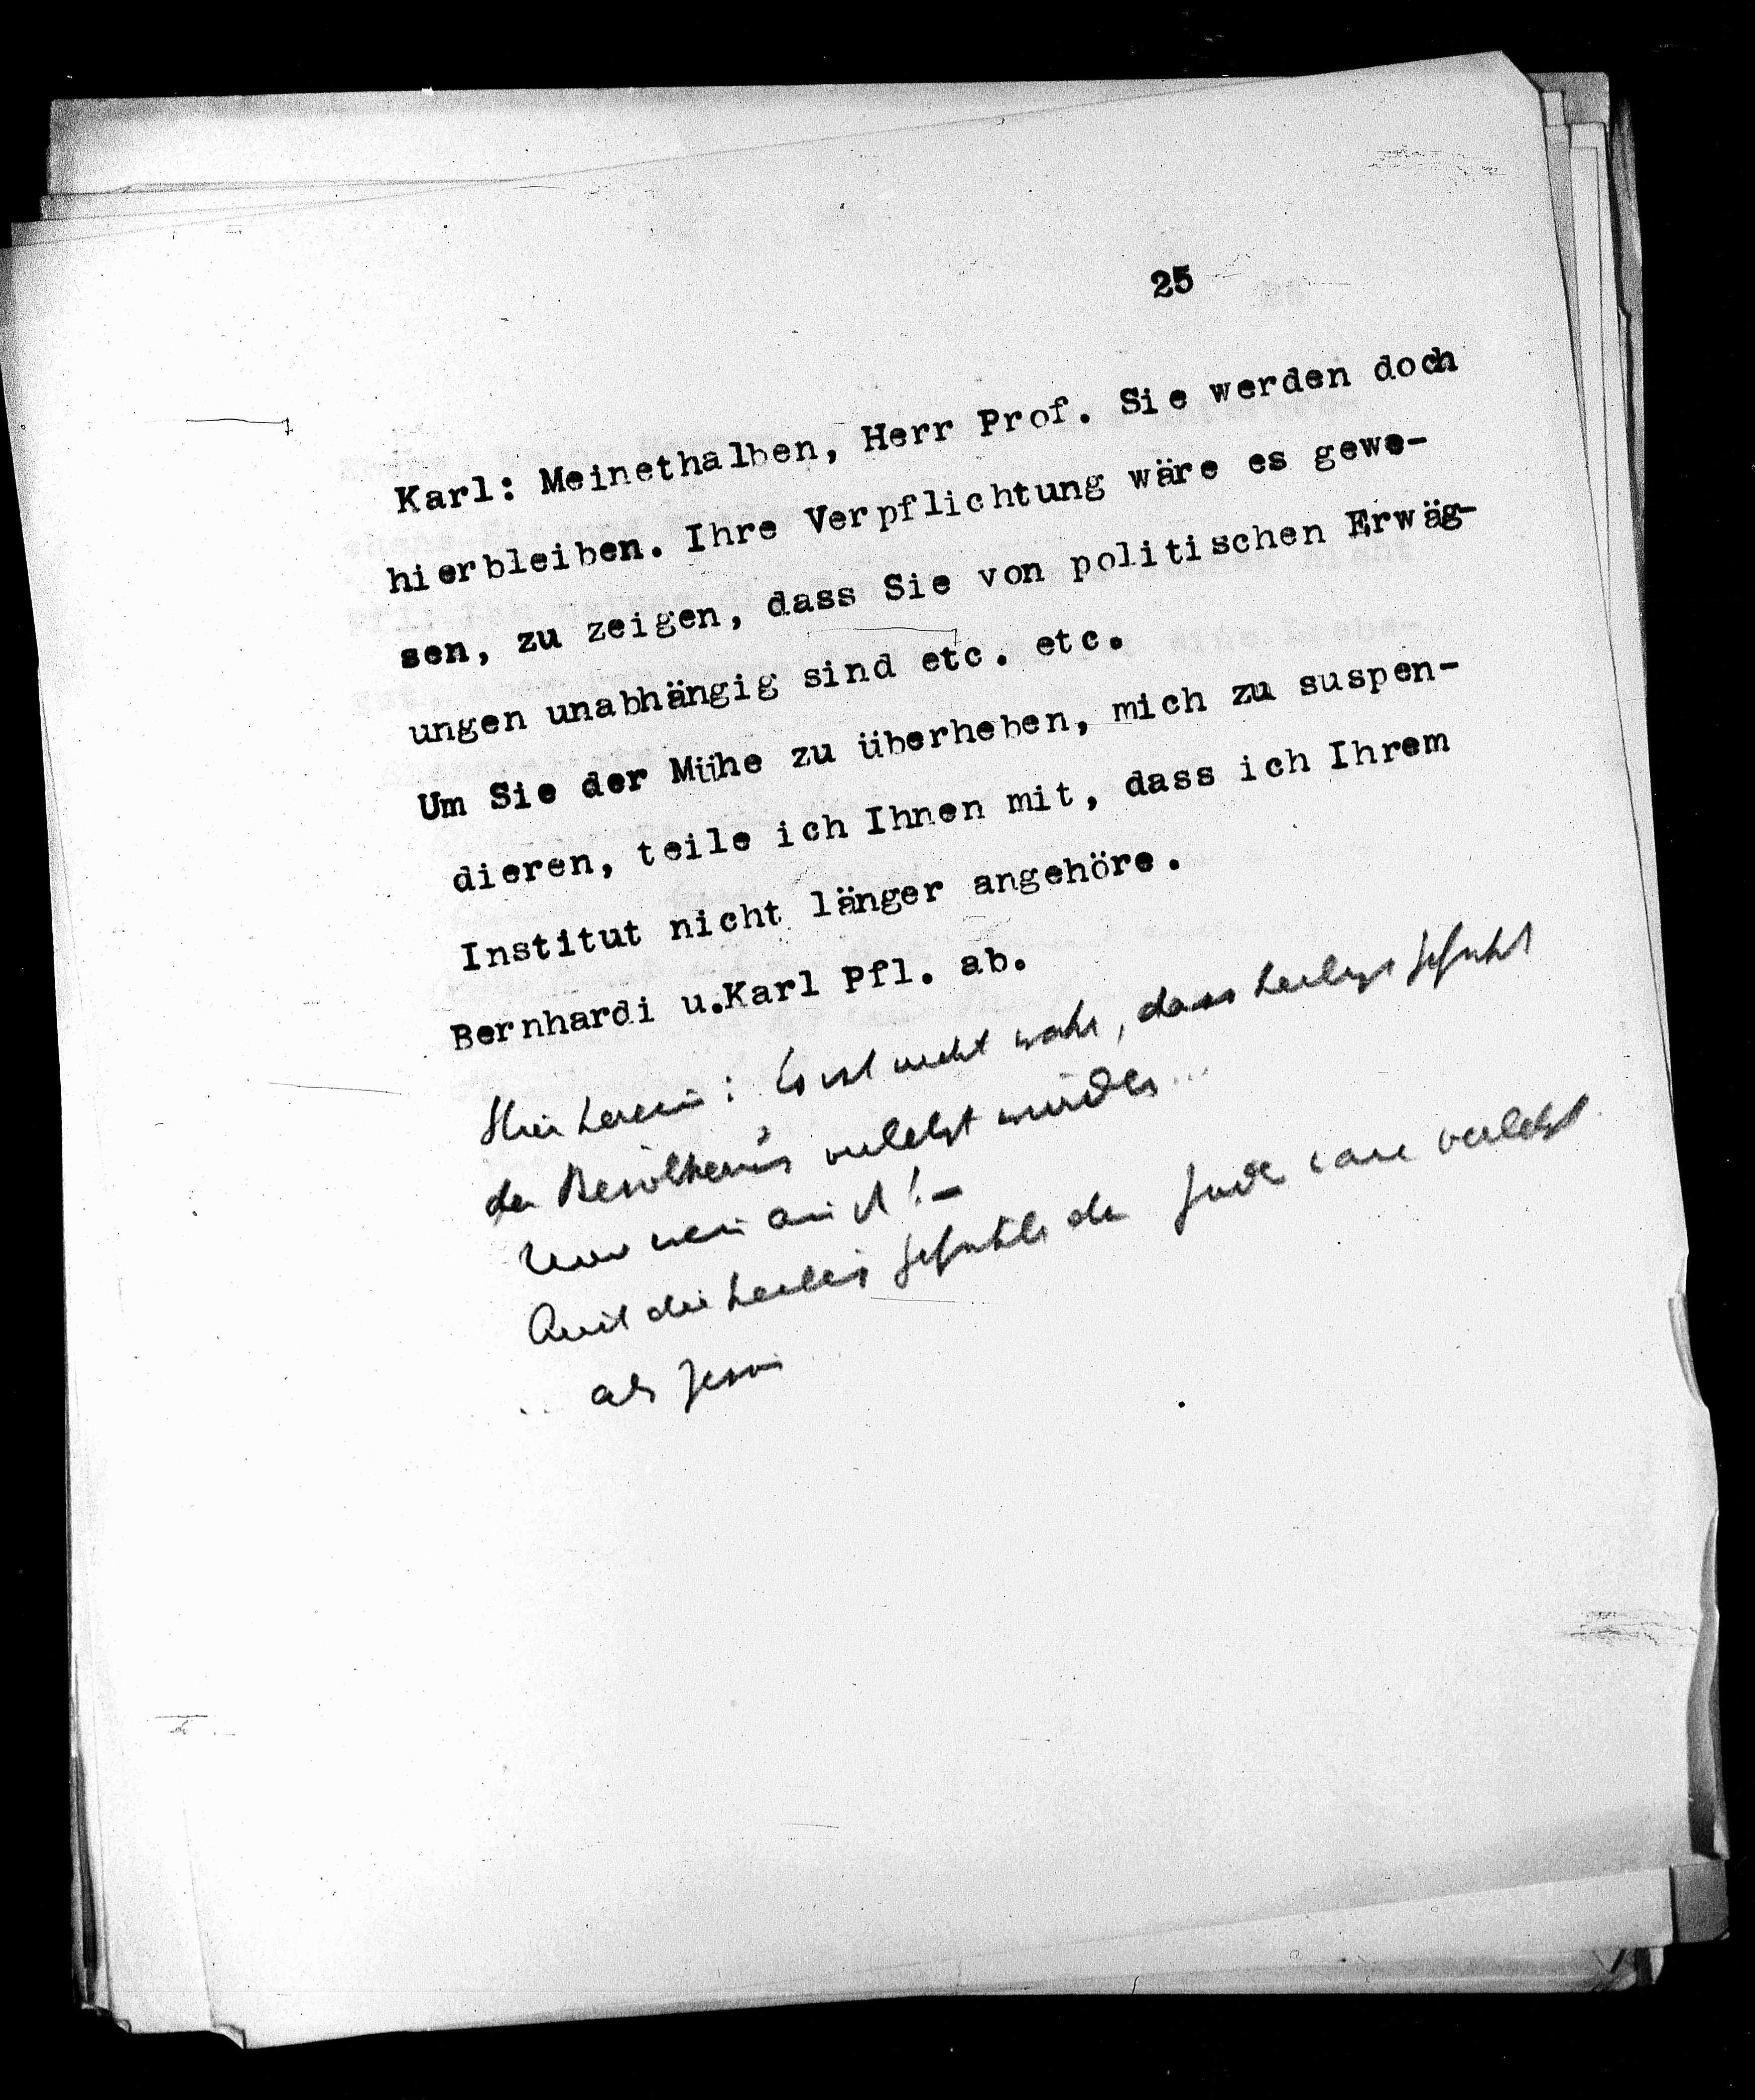 25
Karl: Meinethalben, Herr Prof. Sie werden doch
hierbleiben. Ihre Verpflichtung wäre es gewe-
sen, zu zeigen, dass Sie von politischen Erwäg-
ungen unabhängig sind etc. etc.
Um Sie der Mühe zu überheben, mich zu suspen-
dieren, teile ich Ihnen mit, dass ich Ihrem
Institut nicht länger angehöre.
Bernhardi u.Karl Pfl. ab.
Hier herein: Es ist nicht wahr, dass heilige Gefühle
der Bevölkerung verletzt wurden...
!-
Auch die heiligen Gefühle der Juden verletzt
.. als